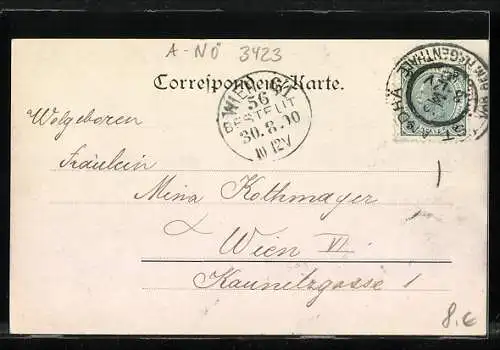 A-NÖ 3423
Correspondenz-Karte.
WIEN 6/1
56
BESTELLT
30.8.00
10 12V
ST. ANDRÄ
Wolgeboren
Fräulein
Mina Kothmayer
Wien VI
Kaunitzgasse 1
8.€